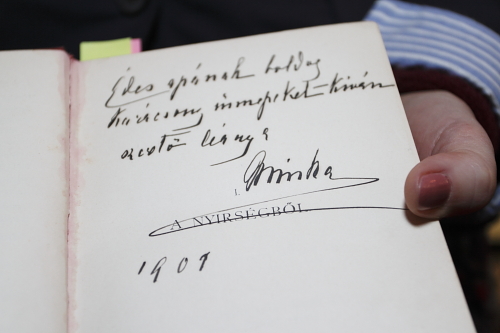 Édes apának boldog
karácsony ünnepeket kiván
szerető leánya
Minka
I.
A NYIRSÉGBŐL
1907